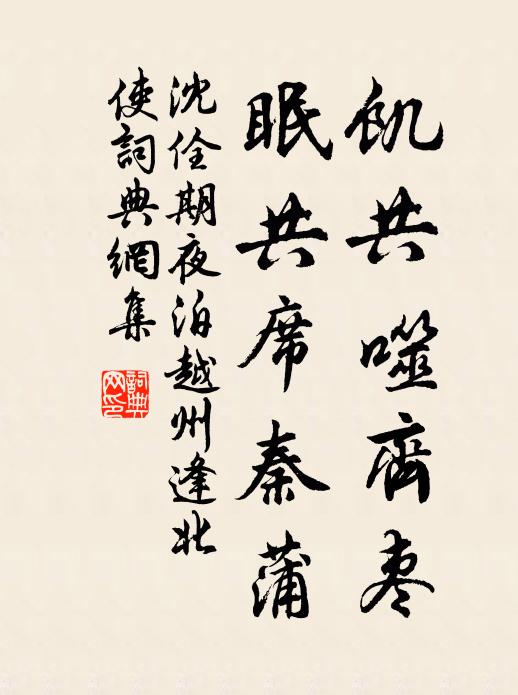 飢共噬齊棗
眠共席秦蒲
沈佺期夜泊越州逢北
使詞典網集
詞典
网印